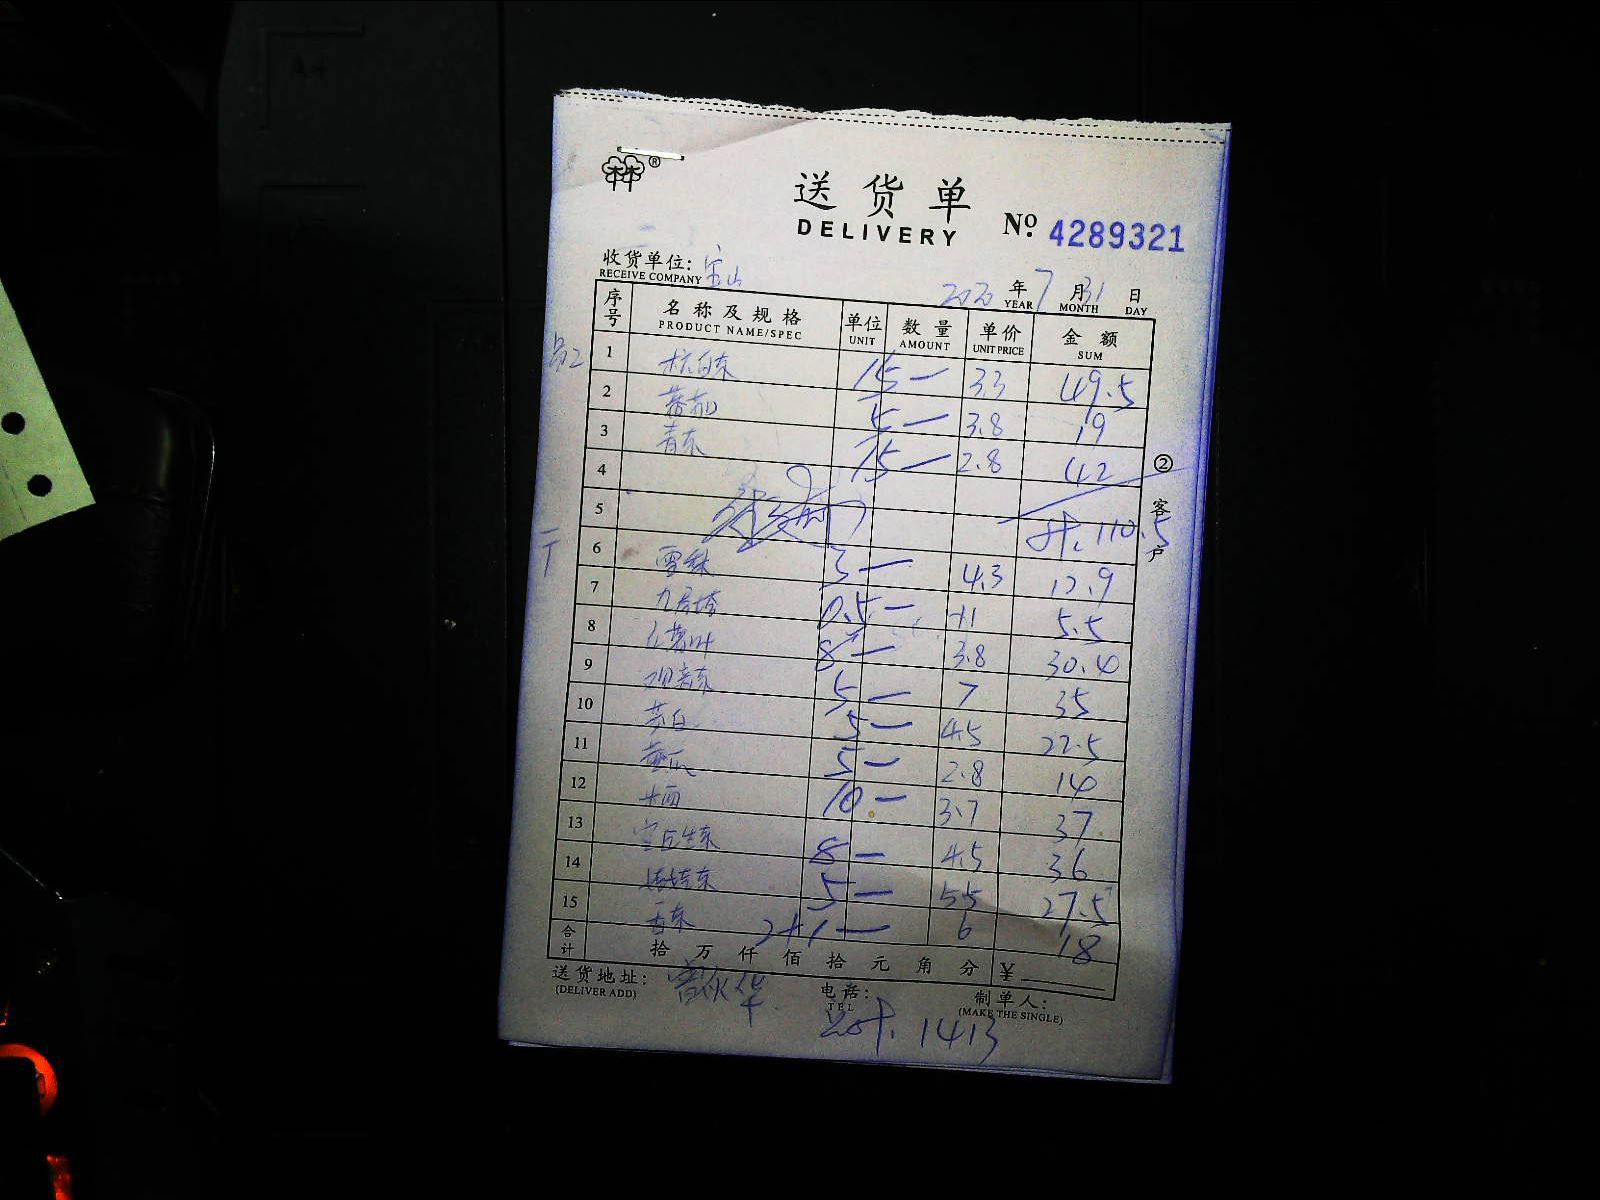 林®
送货单
DELIVERY
No. 4289321
收货单位: 宝山
RECEIVE COMPANY
2020 年 7 月 31 日
YEAR MONTH DAY
序号 名称及规格 单位 数量 单价 金额
PRODUCT NAME/SPEC UNIT AMOUNT UNIT PRICE SUM
员工
1 杭白菜 15 — 3.3 49.5
2 蕃茄 5 — 3.8 19
3 青菜 15 — 2.8 42
4
5 计. 110.5
② 客户
二丁
6 3 — 4.3 12.9
7 九层塔 0.5 — 11 5.5
8 红薯叶 8 — 3.8 30.4
9 5 — 7 35
10 茭白 5 — 4.5 22.5
11 黄瓜 5 — 2.8 14
12 10 — 3.7 37
13 8 — 4.5 36
14 5 — 5.5 27.5
15 香菜 2+1 — 6 18
合计 拾 万 仟 佰 拾 元 角 分 ¥
送货地址:
(DELIVER ADD)
电话:
TEL
制单人:
(MAKE THE SINGLE)
1413